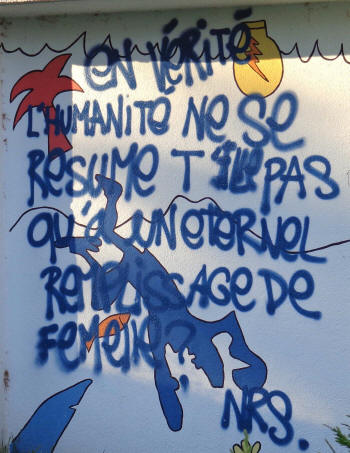 EN VÉRITÉ
L'HUMANITÉ NE SE
RESUME T'ELLE PAS
QU'À UN ETERNEL
REMPLISSAGE DE
FEMELLE?
NRS.